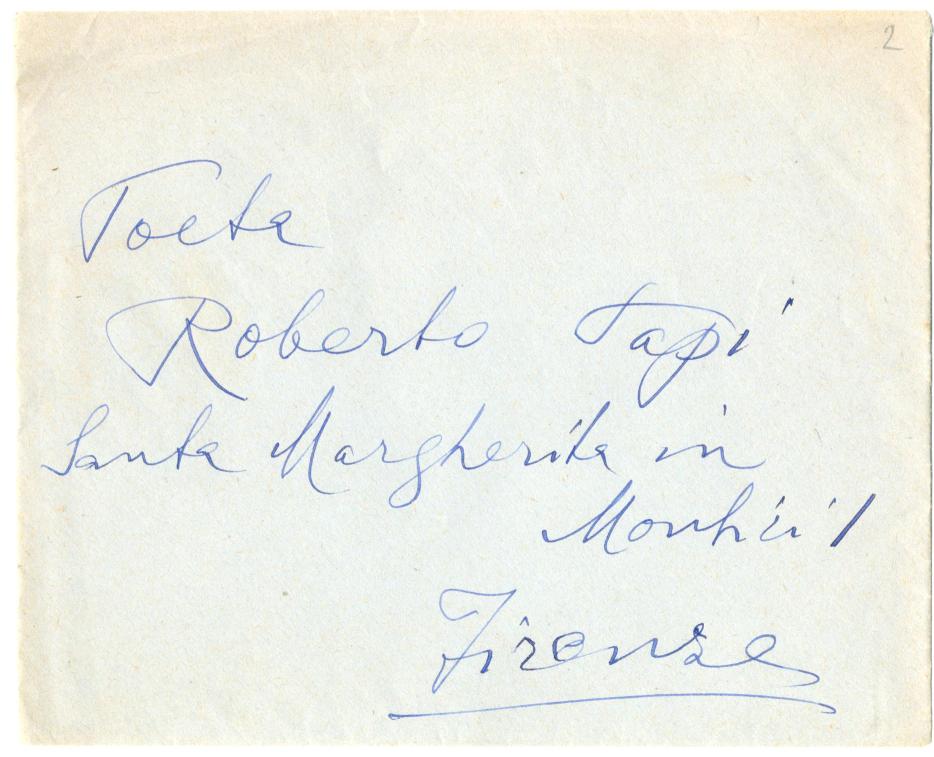 2
Poeta
Roberto Papi
Santa Margherita in
Montici 1
Firenze